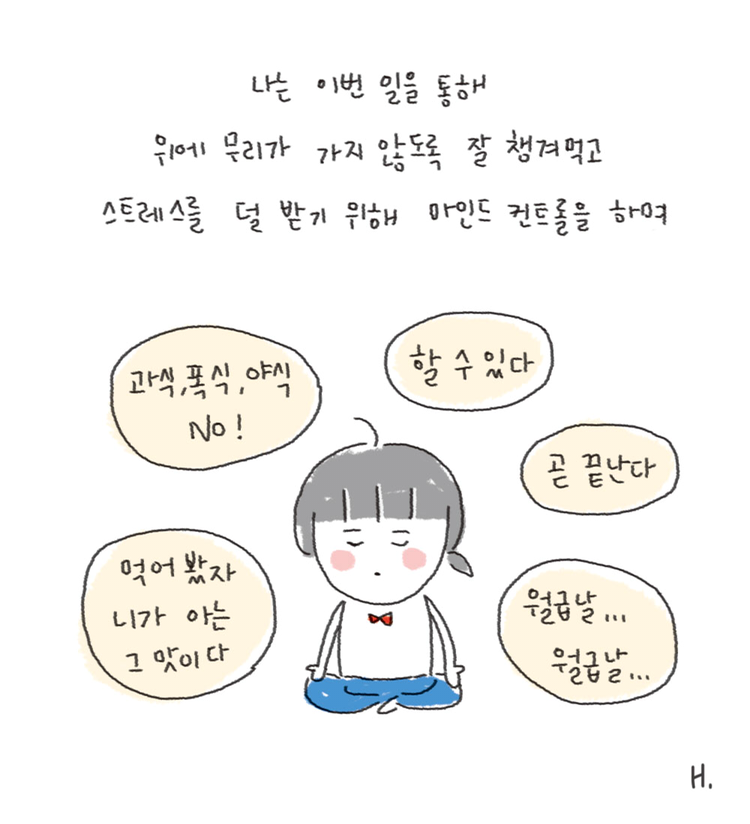 나는 이번 일을 통해
위에 무리가 가지 않도록 잘 챙겨먹고
스트레스를 덜 받기 위해 마인드 컨트롤을 하며
과식, 폭식, 야식
NO!
할 수 있다
곧 끝난다
먹어 봤자
니가 아는
그 맛이다
월급날...
월급날...
H.